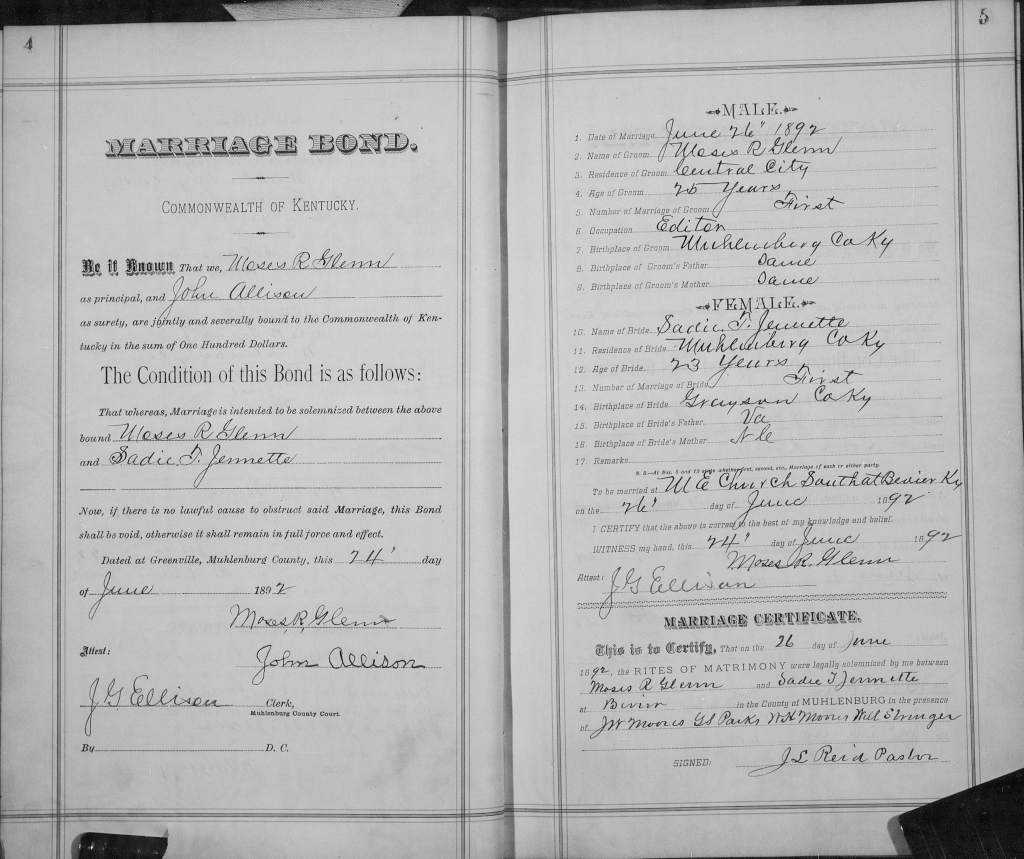 4
MARRIAGE BOND.
COMMONWEALTH OF KENTUCKY.
Be it Known That we, Moses R Glenn
as principal, and John Allison
as surety, are jointly and severally bound to the Commonwealth of Ken-
tucky in the sum of One Hundred Dollars.
The Condition of this Bond is as follows:
That whereas, Marriage is intended to be solemnized between the above
bound Moses R Glenn
and Sadie. T. Jennette
Now, if there is no lawful cause to obstruct said Marriage, this Bond
shall be void, otherwise it shall remain in full force and effect.
Dated at Greenville, Muhlenburg County, this 24' day
of June 1892
Moses, R, Glenn
Attest:
John Allison
J G Ellison Clerk,
Muhlenburg County Court.
By D. C.
5
MALE.
1. Date of Marriage June 26" 1892
2. Name of Groom Moses R Glenn
3. Residence of Groom Central City
4. Age of Groom 25 Years
5. Number of Marriage of Groom First
6. Occupation Editor
7. Birthplace of Groom Muhlenburg Co Ky
8. Birthplace of Groom's Father Same
9. Birthplace of Groom's Mother Same
FEMALE.
10. Name of Bride Sadie. T. Jennette
11. Residence of Bride Muhlenburg Co Ky
12. Age of Bride 23 Years
13. Number of Marriage of Bride First
14. Birthplace of Bride Grayson Co Ky
15. Birthplace of Bride's Father Va
16. Birthplace of Bride's Mother N C
17. Remarks
N. B.—At Nos. 5 and 13 state whether first, second, etc., Marriage of each or either party.
To be married at M E Church South at Bevier Ky
on the 26' day of June 1892
I CERTIFY that the above is correct to the best of my knowledge and belief.
WITNESS my hand, this 24' day of June 1892
Moses R. Glenn
Attest: J G Ellison
MARRIAGE CERTIFICATE.
This is to Certify, That on the 26 day of June
1892, the RITES OF MATRIMONY were legally solemnized by me between
Moses R Glenn and Sadie T Jennette
at Bevier in the County of MUHLENBURG in the presence
of J W Moores G S Parks W H Moores Will Stringer
SIGNED: J L Reid Pastor